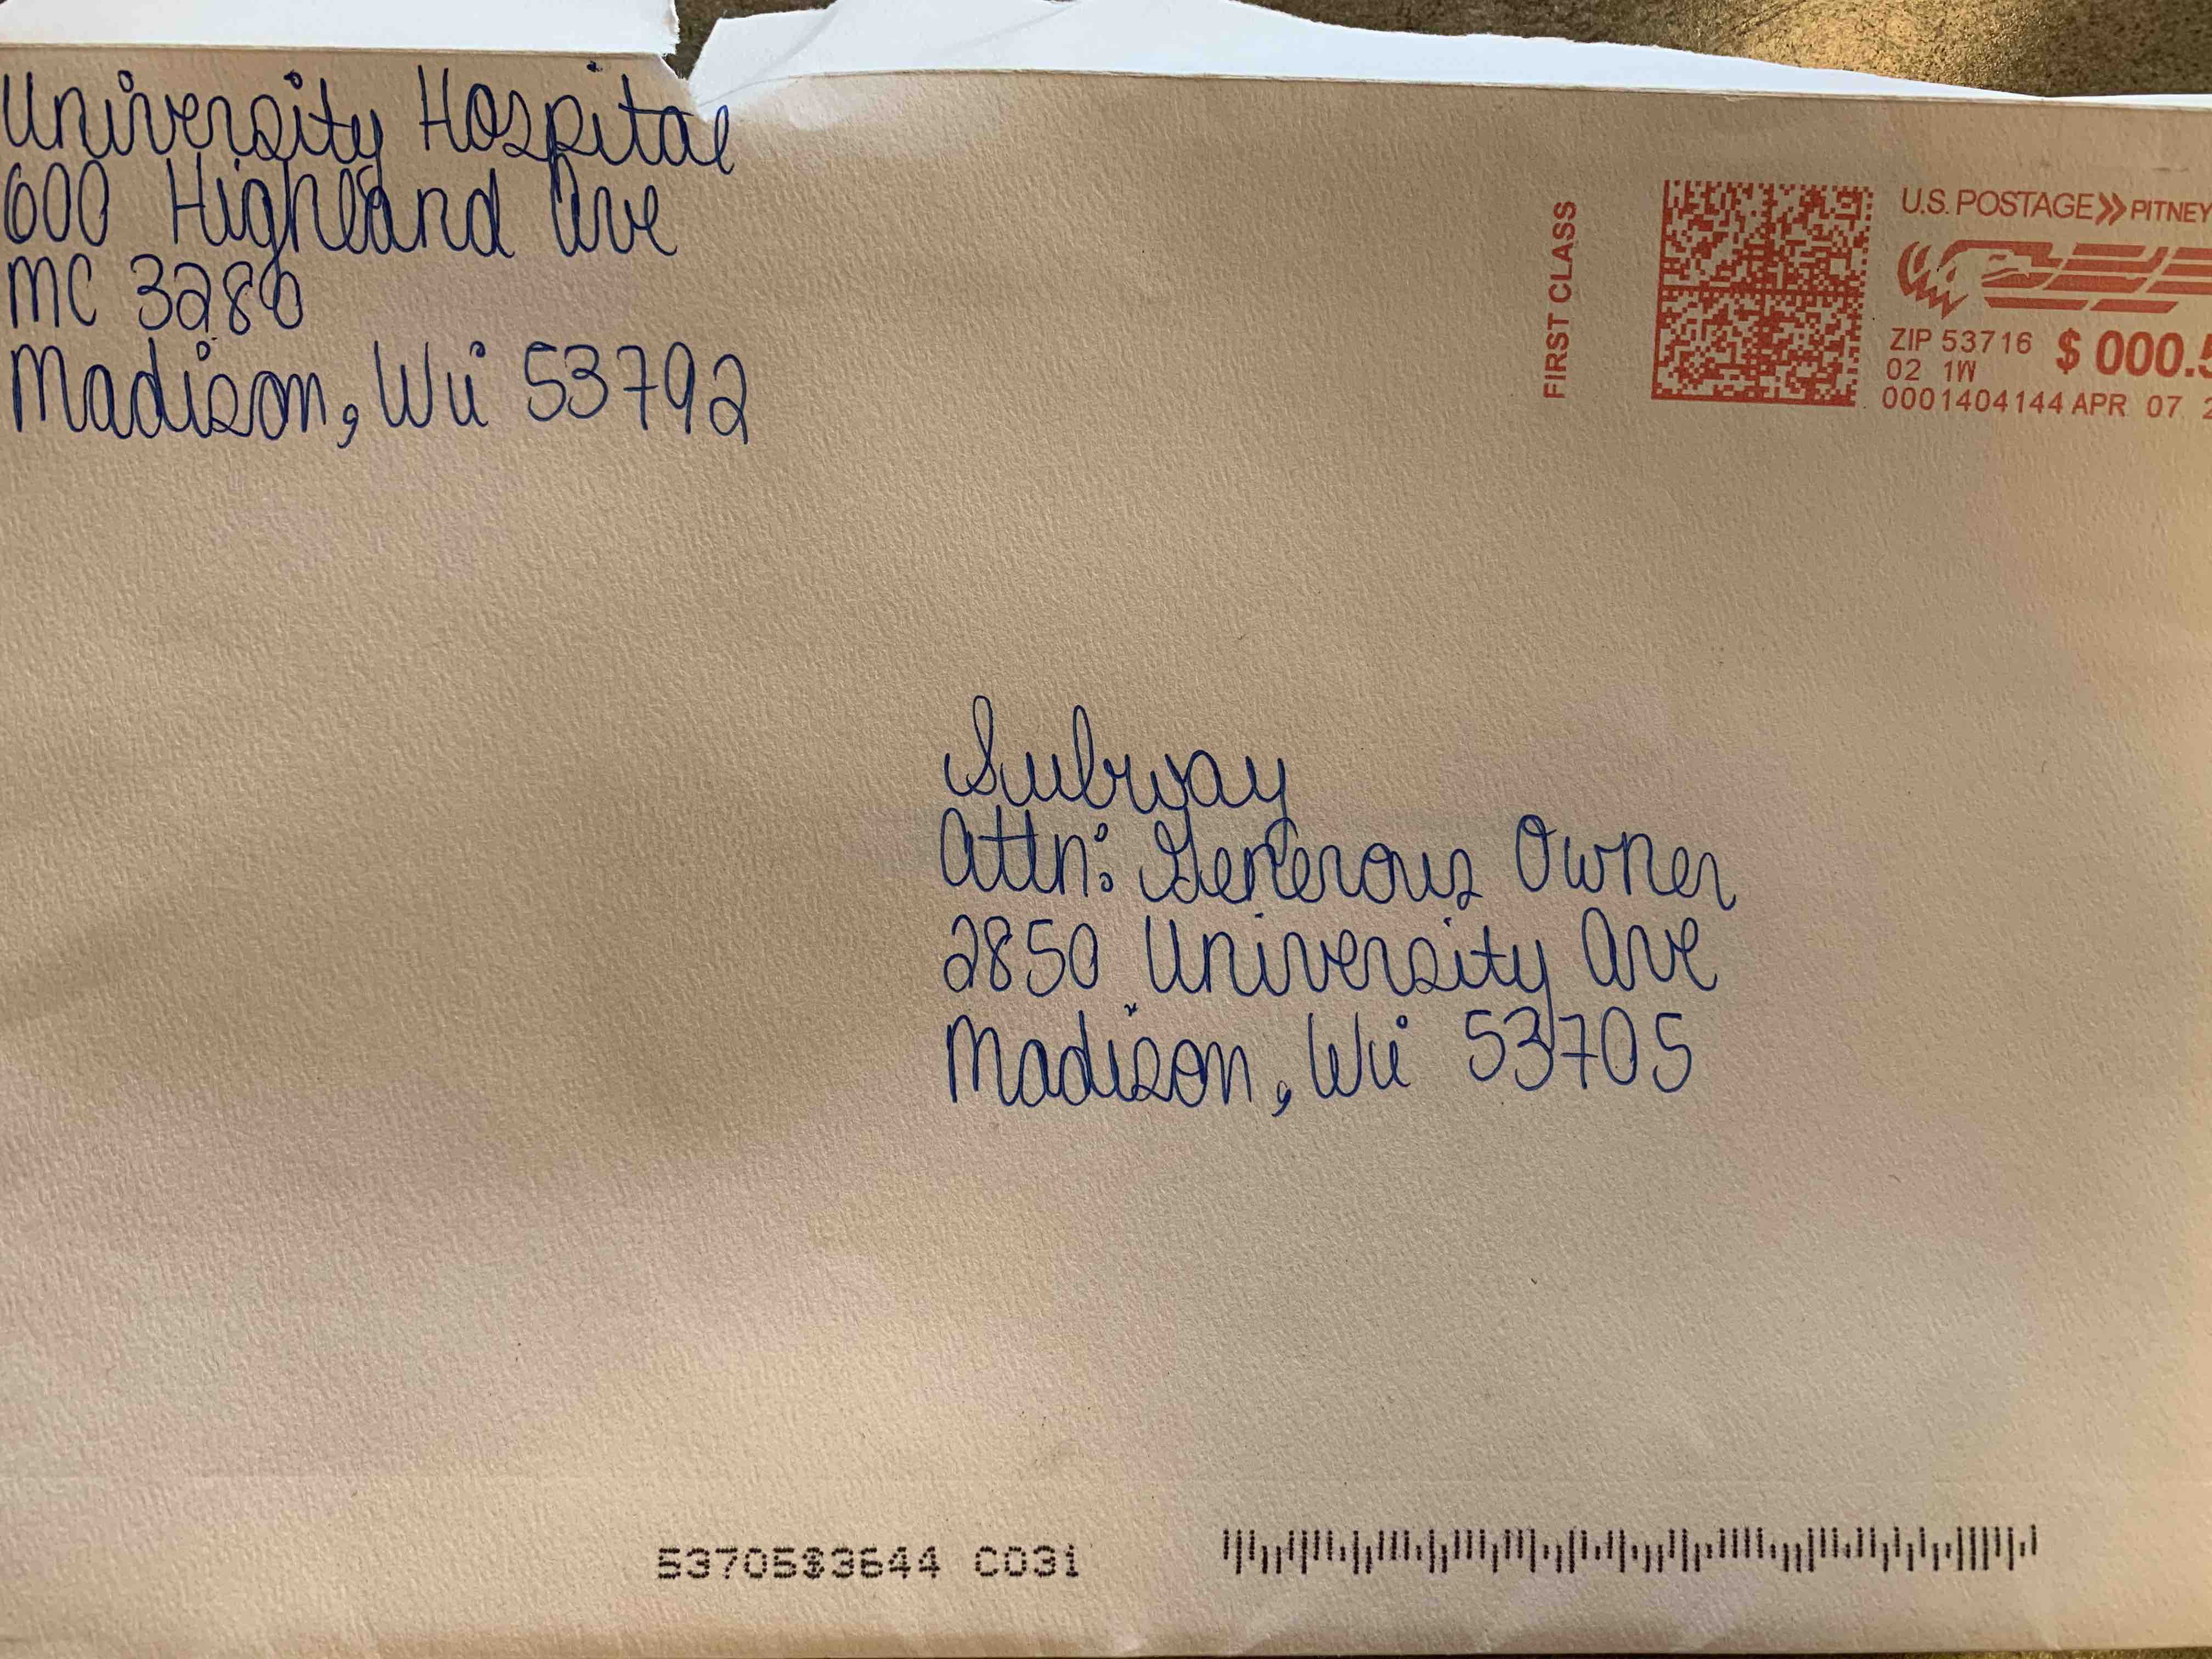 University Hospital
600 Highland Ave
MC 3280
Madison, Wi 53792
FIRST CLASS
U.S. POSTAGE >> PITNEY
ZIP 53716 $ 000.5
02 1W
0001404144 APR 07 2
Subway
Attn: Generous Owner
2850 University Ave
Madison, Wi 53705
53705$3644 C031